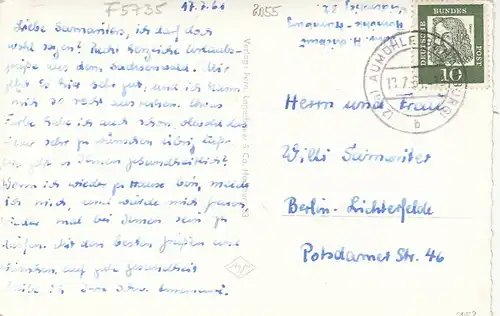 F5735
17.7.61
8055
Liebe Samariters, ich darf doch
wohl sagen! Recht herzliche Urlaubs-
grüße aus dem Sachsenwald. Mir
geht es hier sehr gut, und ich kann
mich so recht ausruhen. Etwas
Farbe habe ich auch schon, obwohl das
sehr zu wünschen übrig
geht es Ihnen gesundheitlich?
Wenn ich wieder zu Hause bin, melde
ich mich, und würde mich freuen
wieder mal bei Ihnen sein zu
dürfen. Mit den besten Grüßen und
Wünschen, auf gute Gesundheit
bleibe ich Ihre
Verlag: Herm. Lorenz & Co.
(24a) AUMÜHLE
13.7.61
b
DEUTSCHE BUNDESPOST
10
Herrn und Frau
Willi Samariter
Berlin-Lichterfelde
Potsdamer Str. 46